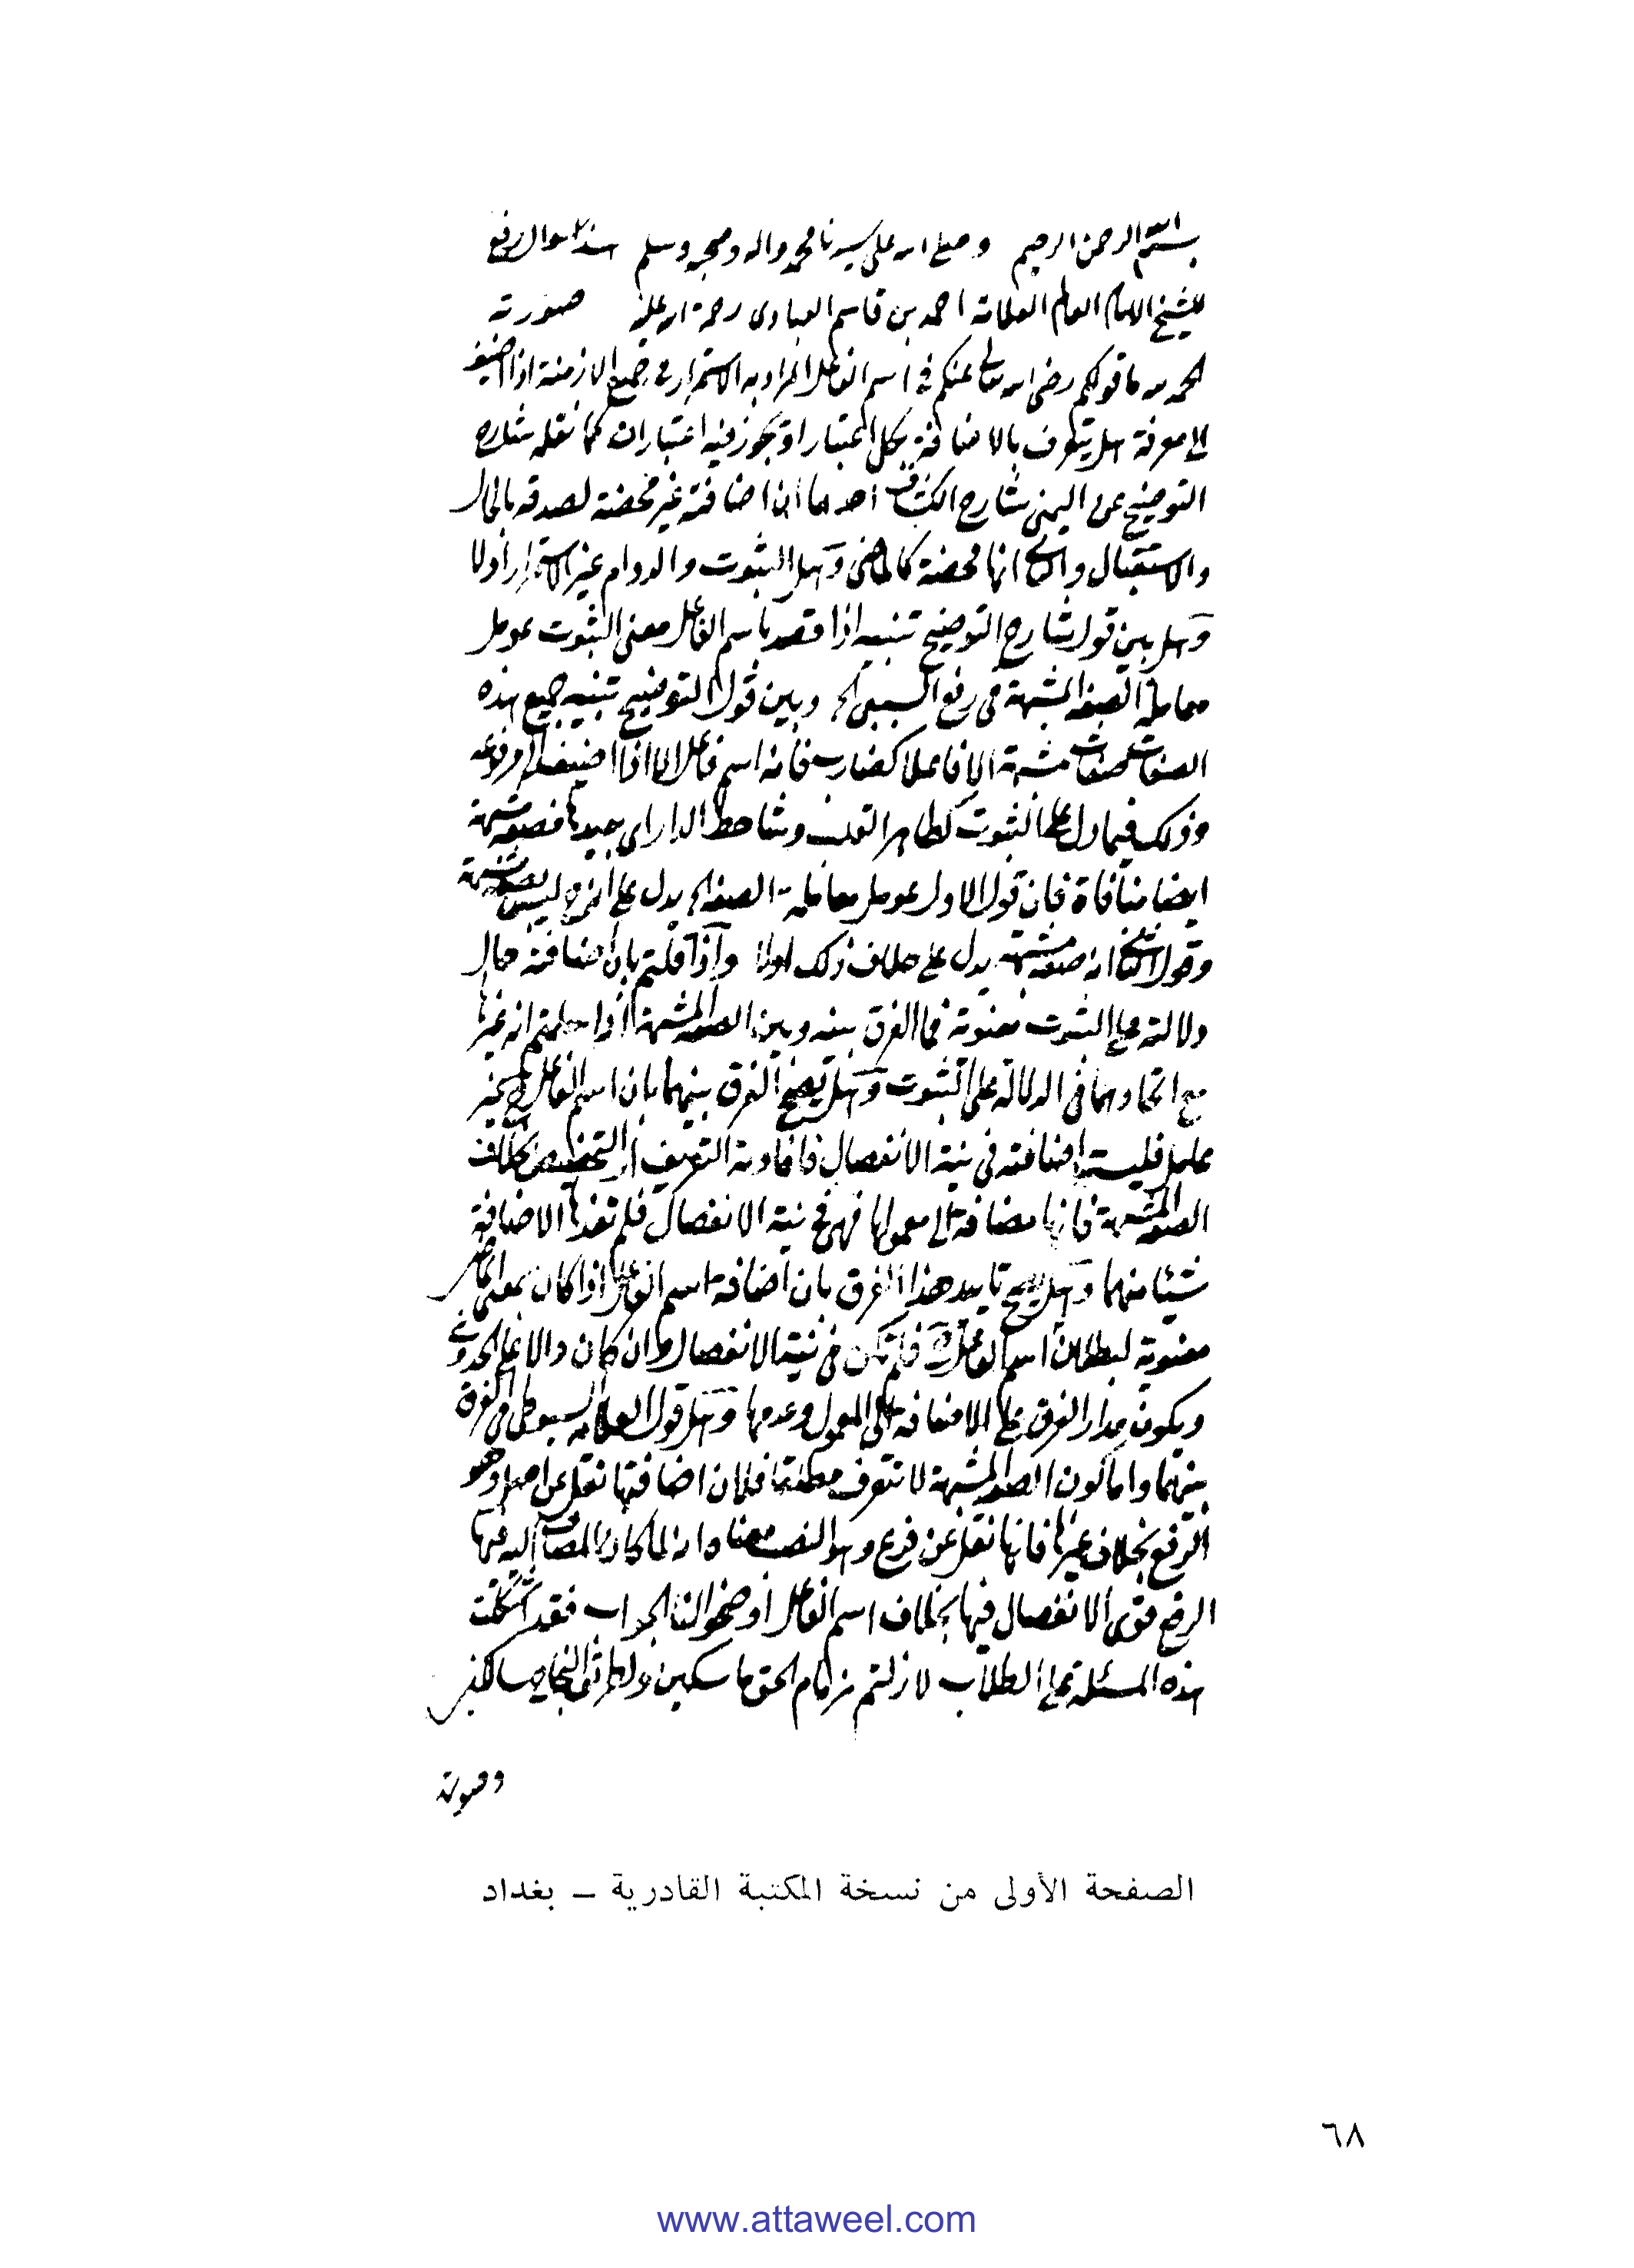 بسم الله الرحمن الرحيم وصلى الله على سيدنا محمد واله وصحبه وسلم هذا سوال رفع
للشيخ الامام العالم العلامة احمد بن قاسم العبادى رحمة الله عليه صورته
الحمد لله ما قولكم رضى الله تعالى عنكم فى اسم الفاعل المراد به الاستمرار فى جميع الازمنة اذا اضيف
الى معرفة هل يتعرف بالاضافة بكل اعتبار او يجوز فيه اعتباران كما نقله شارح
التوضيح عن اليمنى شارح الكشاف احدهما ان اضافته غير محضة لصدقه بالحال
والاستقبال والثانى انها محضة كالماضى وهل الثبوت والدوام غير الاستمرار أو لا
وهل بين قول شارح التوضيح تنبيه اذا قصد باسم الفاعل معنى الثبوت عومل
معاملة الصفة المشبهة فى رفع السببى الخ وبين قول التوضيح تنبيه جميع هذه
الصفات صفات مشبهة الا فاعلا كضارب فانه اسم فاعل الا اذا اضيف الى مرفوعه
وذلك فيما دل على الثبوت كطاهر القلب وشاحط الدار اى بعيدها فصفة مشبهة
ايضا منافاة فان قول الاول عومل معاملة الصفة الخ يدل على انه ليس بصفة مشبهة
وقول الثانى انه صفة مشبهة يدل على خلاف ذلك اولا واذا قلتم بان اضافته حال
دلالته على الثبوت معنوية فما الفرق بينه وبين الصفة المشبهة اذا جعلتم انه غيرها
مع اتحادهما فى الدلالة على الثبوت وهل يصح الفرق بينهما بان اسم الفاعل غير
عامل فليست اضافته فى نية الانفصال فافادته التعريف أو التخصيص بخلاف
الصفة المشبهة فانها مضافة الى معمولها فهى فى نية الانفصال فلم تفدها الاضافة
شيئا منهما وهل يصح تاييد هذا الفرق بان اضافة اسم الفاعل اذا كان بمعنى الماضى
معنوية لبطلان اسم الفاعل فلم تكن فى نية الانفصال وان كان دالا على الحدوث
ويكون مدار الفرق على الاضافة الى المعمول وعدمها وهل قول العلامة السيوطى فى الفرق
بينهما واما كون الصفة المشبهة لا تتعرف مطلقا فلان اضافتها نقل عن اصل وهو
الرفع بخلاف غيرها فانها نقل عن فرع وهو النصب معناه انه لما كان المضاف اليه فيها
الرفع قوى الانفصال فيها بخلاف اسم الفاعل أوضحوا لنا الجواب فقد اشكلت
هذه المسئلة على الطلاب لا زلتم بزمام الحق ماسكين ولطرائق النجاة سالكين
وصورة
الصفحة الأولى من نسخة المكتبة القادرية – بغداد
٦٨
www.attaweel.com